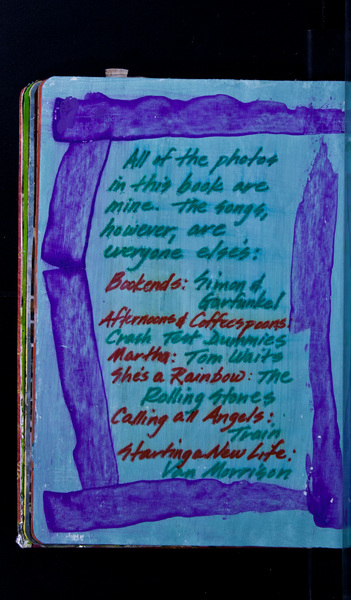 All of the photos
in this book are
mine. the songs,
however, are
everyone else's:
Bookends: Simon &
Garfunkel
Afternoons & Coffeespoons:
Crash Test Dummies
Martha: Tom Waits
She's a Rainbow: The
Rolling Stones
Calling all Angels:
Train
Starting a New Life:
Van Morrison